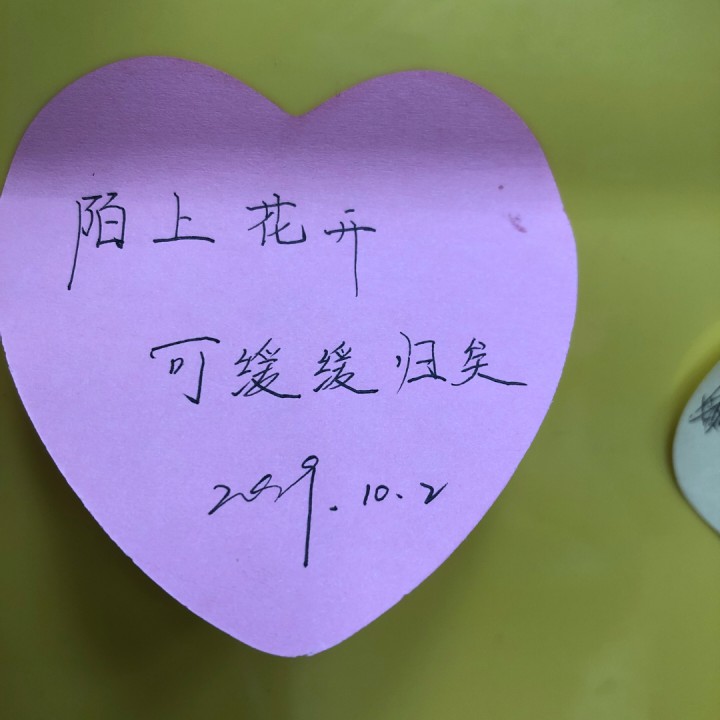 陌上花开
可缓缓归矣
2019.10.2